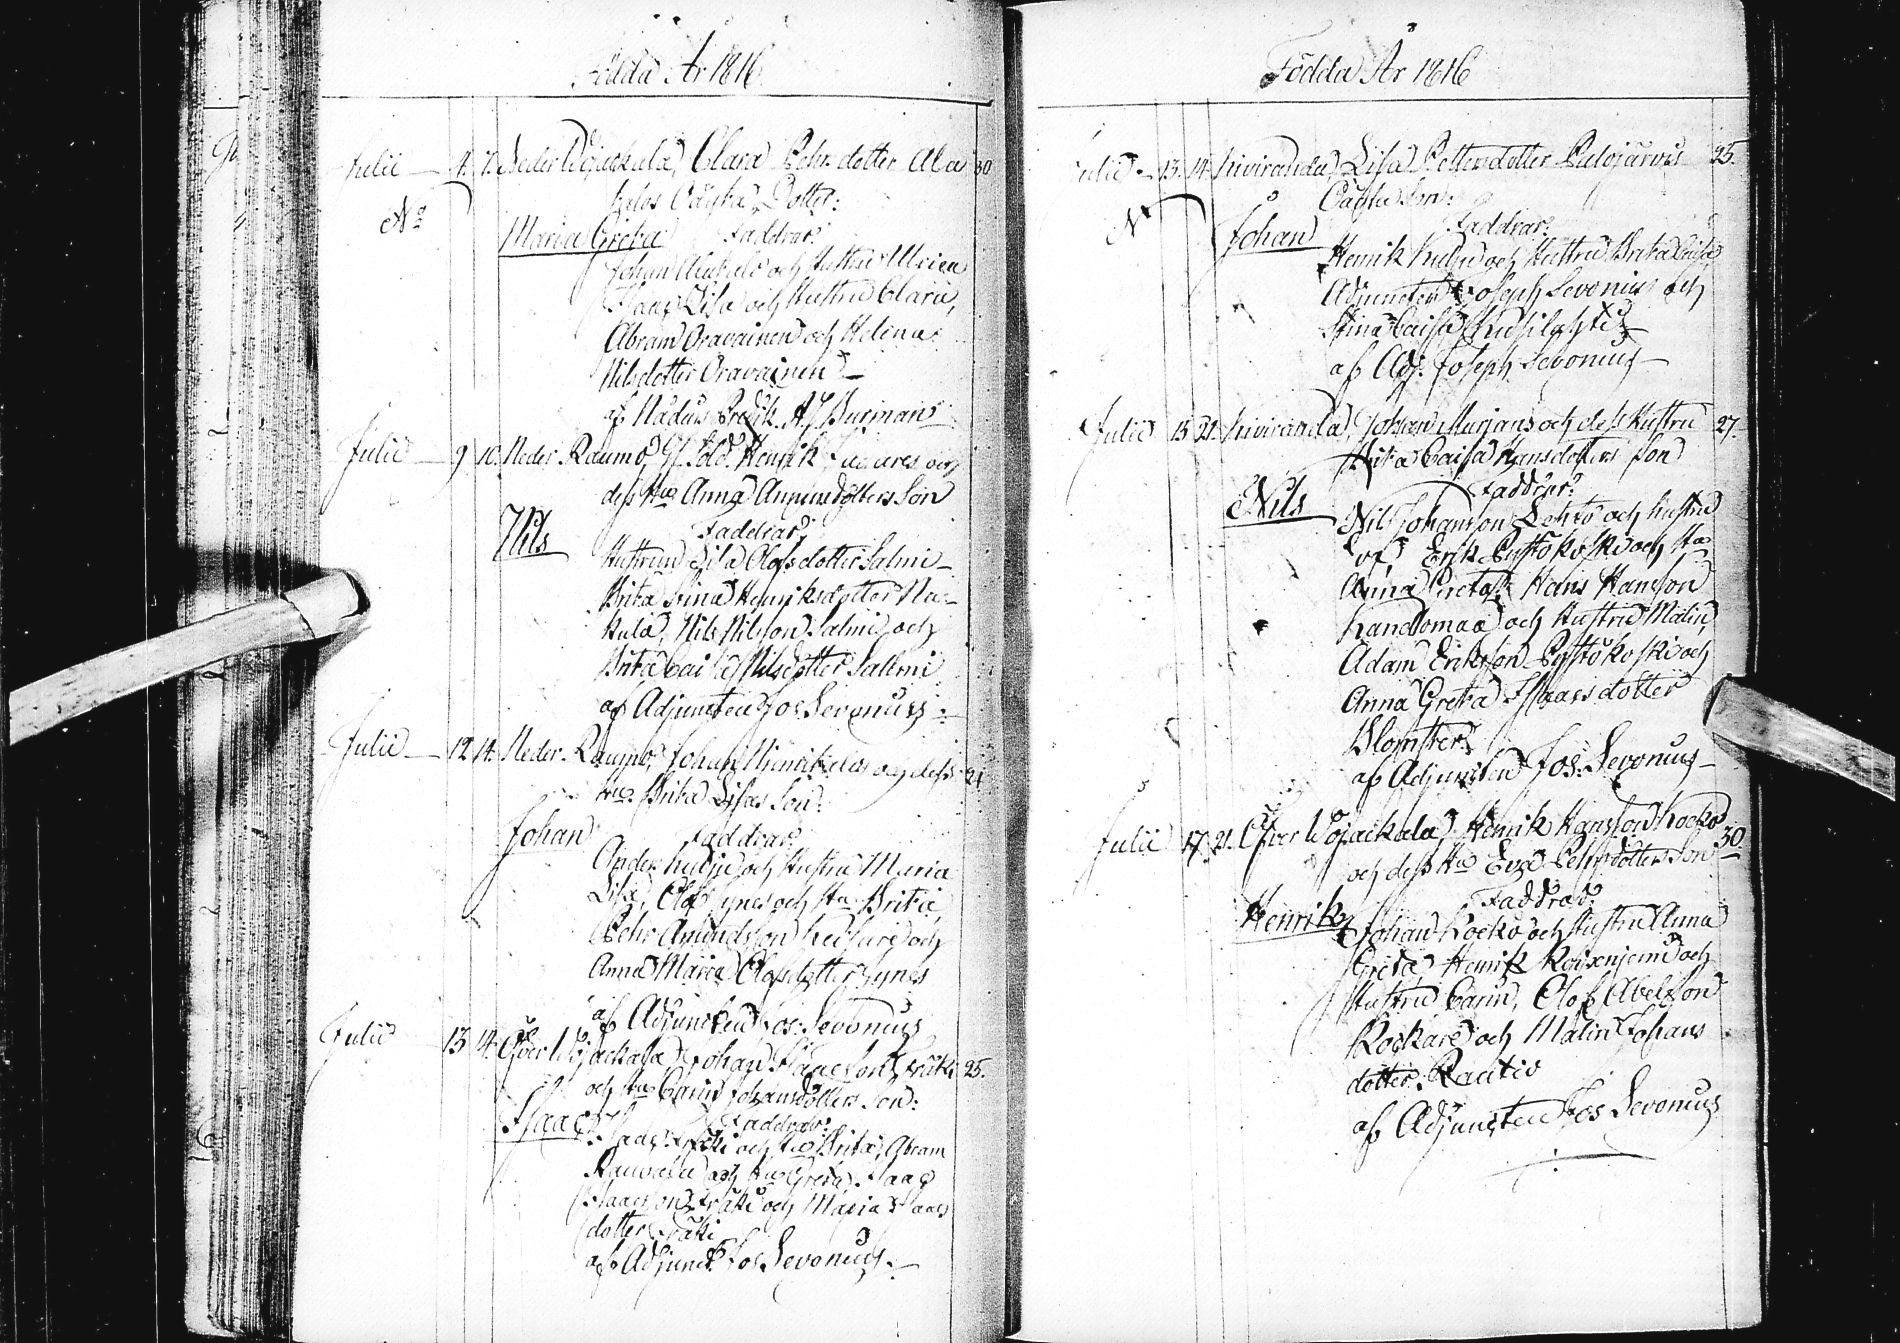 Födda År 1816
Julii 4. 7. Neder Wojackala, Clara Pehrsdotter Ala 30
Oächta Dotter:
N:o
Maria Greta Faddrar:
Johan och Hustru Ulrica
Isaac Lisa och Hustru Clara,
Abram Oravainen och Helena
Nilsdotter Oravainen
af Burman
Julii 9 10. Neder Raumo, Henrik och
dess H:u Anna Amundsdotters Son
Nils Faddrar:
Hustrun Lisa Olofsdotter Salmi
Brita Stina Henriksdotter Na-
kula, Nils Nilsson Salmi och
Brita Caisa Nilsdotter Salmi
af Adjuncten Jos. Sevonius
Julii 12 14. Neder Raumo, Johan och dess 21
H:u Brita Lisas Son:
Johan Faddrar:
och Hustru Maria
Lisa, Olof Synes och H:u Brita
Pehr Amundsson och
Anna Maria Olofsdotter Synes
af Adjuncten Jos: Sevonius
Julii 13 14. Öfver Wojackala Johan Isaacson Fräki 25.
och H:u Carin Johansdotters Son:
Isaac Faddrar:
Isaac Fräki och H:u Brita, Abram
och H:u Greta, Isaac
Isaacson Fräki och Maria Isaacs
dotter Fräki
af Adjunct. Jos Sevonius.
Födda År 1816
Julii 13. 14. Kiviranda, Lisa Pettersdotter Palojärvis 25.
Oächta Son:
N
Johan Faddrar:
Henrik och Hustru Brita Caisa,
Adjuncten Joseph Sevonius och
Stina Caisa
af Adj: Joseph Sevonius
Julii 15 21. Kiviranda, Johan Marjans och dess Hustru 27.
Brita Caisa Hansdotters Son
Nils Faddrar:
Nils Johanson Lehto och hustru
Erik Pystökoski och H:u
Anna Greta, Hans Hansson
Kandomaa och Hustru Malin,
Adam Eriksson Pystökoski och
Anna Greta Isaacsdotter
Blomster
af Adjuncten Jos: Sevonius
Julii 17. 21. Öfver Wojackala, Henrik Hansson Kocko 30.
och dess H:u Eva Pehrsdotters Son
Henrik Faddrar:
Johan Kocko och Hustru Anna
Greta Henrik och
Hustru Carin, Olof Abelsson
Kockare och Malin Johans
dotter Rautio
af Adjuncten Jos Sevonius